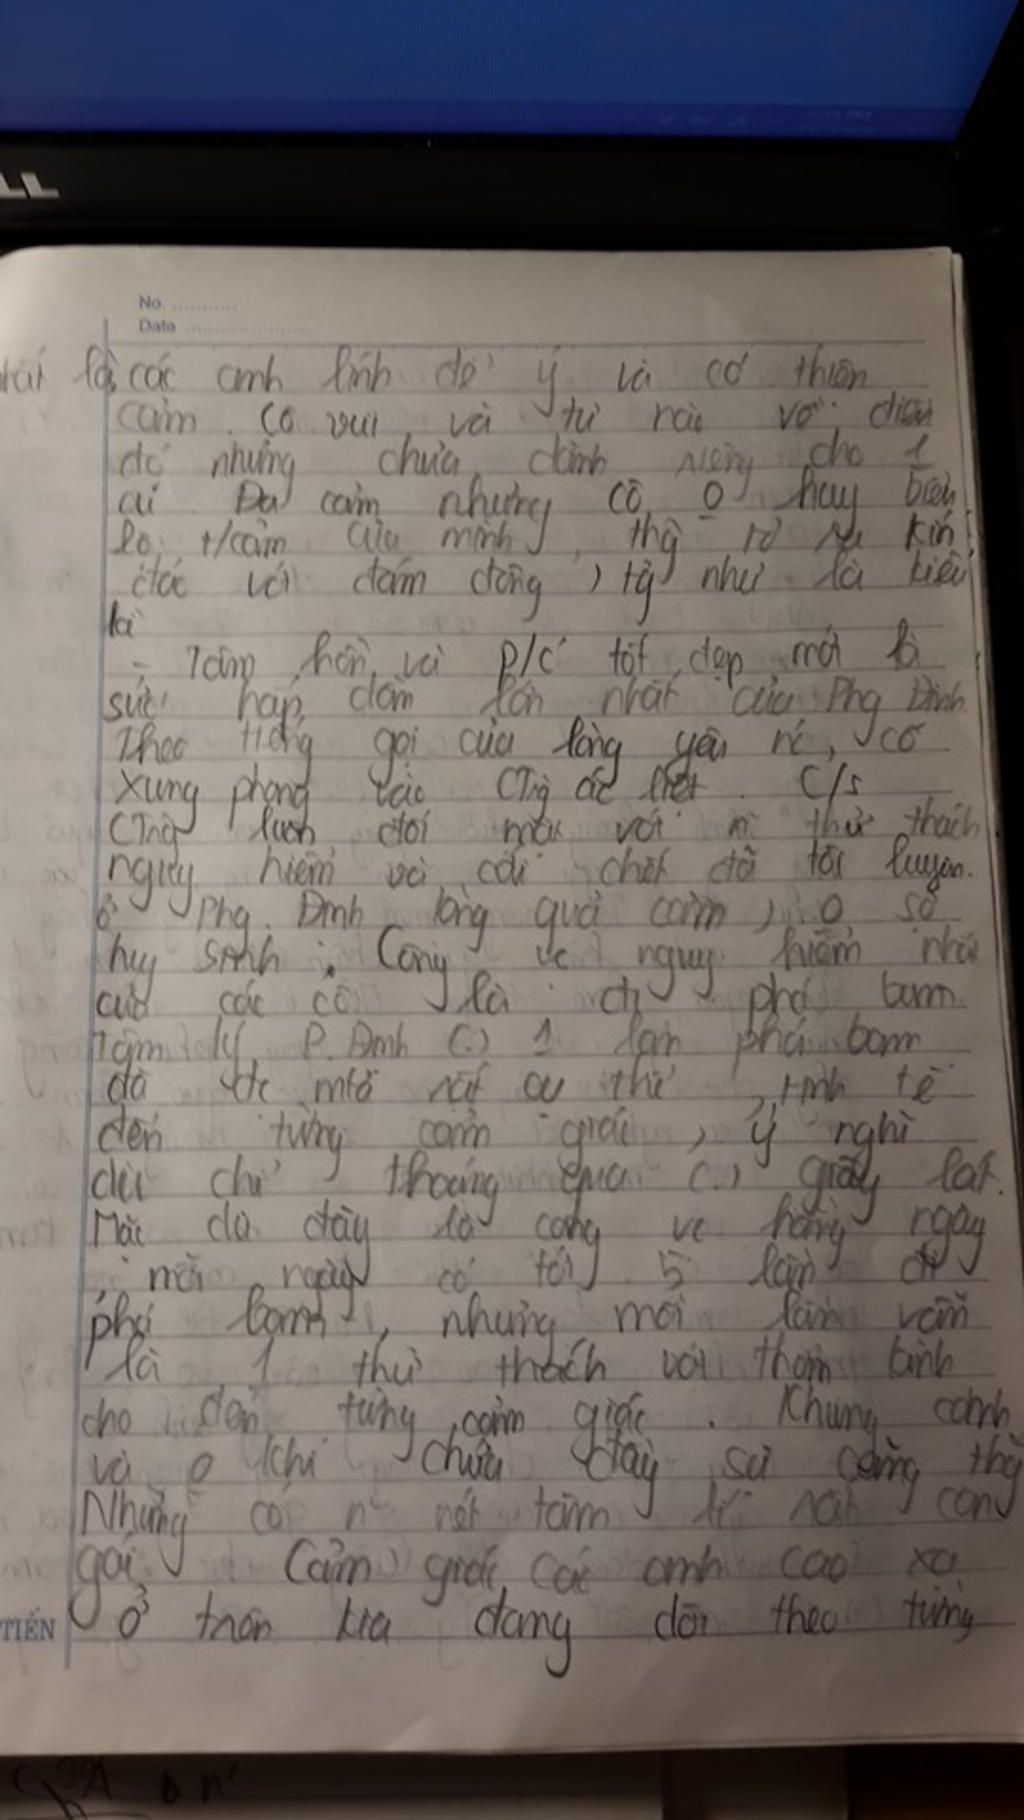 LL
No.
Date
là các anh lính để ý và có thiện
cảm. Cô vui và tự hào về điều
đó nhưng chưa dành riêng cho 1
ai. Đa cảm nhưng cô 0 hay biểu
lộ t/cảm của mình, kín
đáo với đám đông, như là kiêu
kì
- Tâm hồn và p/c tốt đẹp mới là
sức hấp dẫn lớn nhất của Phg Định
Theo tiếng gọi của lòng yêu nc, cô
xung phong vào CTrg ác liệt. C/s
CTrg luôn đối mặt với n thử thách
nguy hiểm và cái chết đã tôi luyện
ở Phg Định lòng quả cảm, 0 sợ
hy sinh. Công vc nguy hiểm nhất
của các cô là đi phá bom
Tâm lý P. Định (.) 1 lần phá bom
đã đc miê rất cụ thể, tinh tế
đến từng cảm giác, ý nghĩ
dù chỉ thoáng qua (.) giây lát.
Mặc dù đây là công vc hằng ngày
mỗi ngày có tới 5 lần đi
phá bom, nhưng mỗi lần vẫn
là 1 thử thách với thần kinh
cho đến từng cảm giác. Khung cảnh
và 0 khí chứa đầy sự căng thg
Nhưng có n~ nét tâm lí rất con
gái. Cảm giác các anh cao xạ
ở trên kia đang dõi theo từng
TIẾN